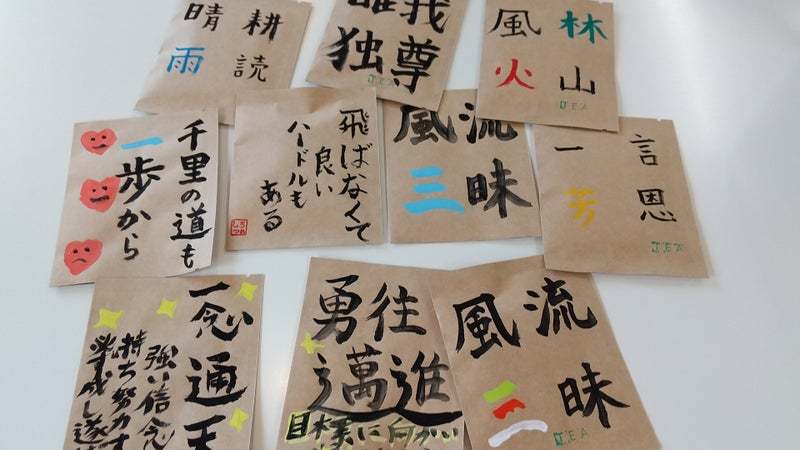 晴耕
雨読
唯我
独尊
TEA
風林
火山
TEA
千里の道も
一歩から
飛ばなくて
良い
ハードルも
ある
風流
三昧
一言
芳恩
TEA
一念通天
強い信念
持ち努力す
勇往
邁進
目標に向かい
風流
三昧
TEA